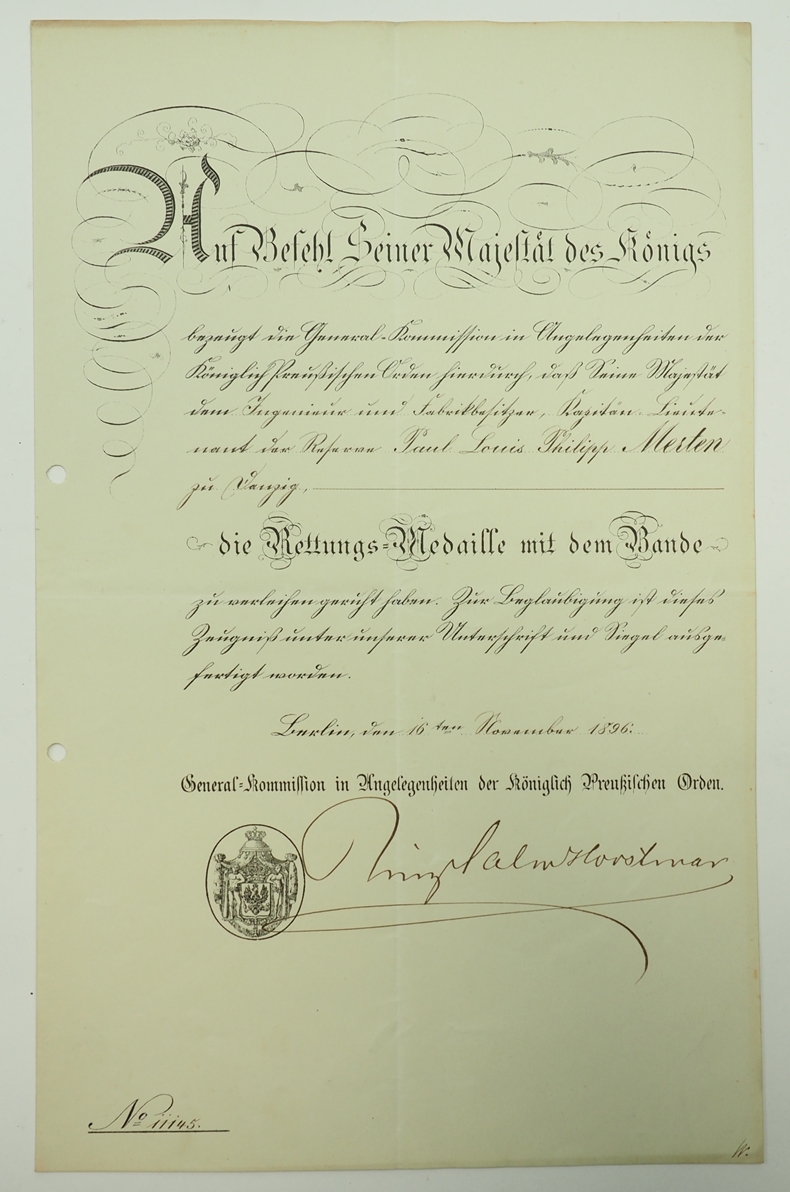 Auf Befehl Seiner Majestät des Königs
bezeugt die General-Kommission in Angelegenheiten der
Königlich Preußischen Orden hierdurch, daß Seine Majestät
dem Ingenieur und Fabrikbesitzer, Kapitän-Lieute-
nant der Reserve Paul Louis Philipp Merten
zu Danzig,
die Rettungs-Medaille mit dem Bande
zu verleihen geruht haben. Zur Beglaubigung ist dieses
Zeugniß unter unserer Unterschrift und Siegel ausge-
fertigt worden.
Berlin, den 16ten November 1896.
General-Kommission in Angelegenheiten der Königlich Preußischen Orden.
Prinz Salm Horstmar
No 11145.
W.